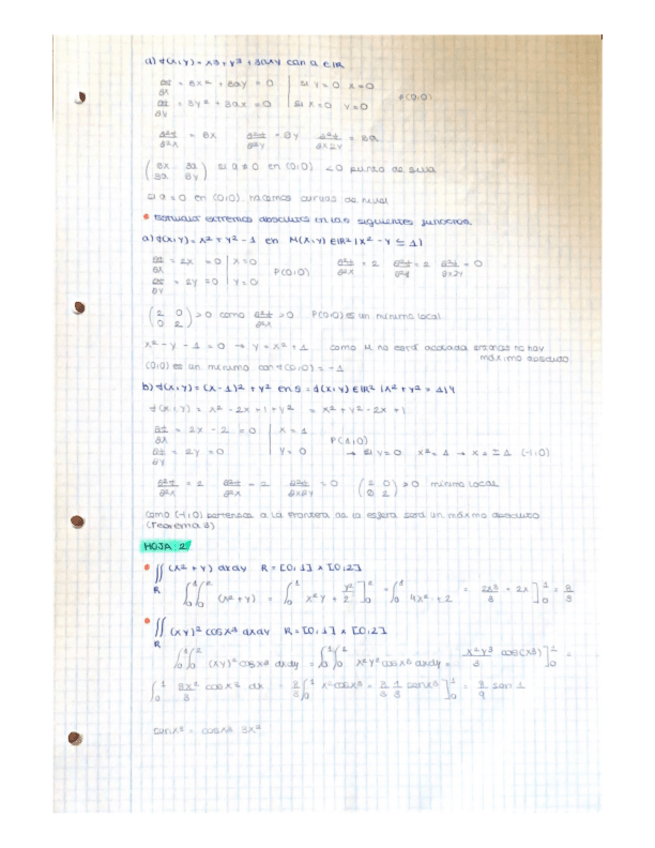 a) f(x,y) = x3 + y3 + 3axy con a ∈ IR
∂f/∂x = 3x2 + 3ay = 0 | si y = 0 x = 0
P(0,0)
∂f/∂y = 3y2 + 3ax = 0 | si x = 0 y = 0
∂2f/∂2x = 6x ∂2f/∂2y = 6y ∂2f/∂x∂y = 3a
(6x 3a
3a 6y) si a ≠ 0 en (0,0) <0 punto de silla
si a = 0 en (0,0), hacemos curvas de nivel
extremos absolutos en las siguientes funciones
a) f(x,y) = x2 + y2 - 1 en M(x,y) ∈ IR2 | x2 - y ≤ 1}
∂f/∂x = 2x = 0 | x = 0
P(0,0) ∂2f/∂2x = 2 ∂2f/∂2y = 2 ∂2f/∂x∂y = 0
∂f/∂y = 2y = 0 | y = 0
(2 0
0 2) > 0 como ∂2f/∂2x > 0 P(0,0) es un mínimo local
x2 - y - 1 = 0 → y = x2 + 1 como M no está acotada entonces no hay
máximo absoluto
(0,0) es un mínimo con f(0,0) = -1
b) f(x,y) = (x-1)2 + y2 en S = {(x,y) ∈ IR2 | x2 + y2 = 1}
f(x,y) = x2 - 2x + 1 + y2 = x2 + y2 - 2x + 1
∂f/∂x = 2x - 2 = 0 | x = 1
P(1,0)
∂f/∂y = 2y = 0 | y = 0 → si y = 0 x2 = 1 → x = ±1 (-1,0)
∂2f/∂2x = 2 ∂2f/∂2x = 2 ∂2f/∂x∂y = 0 (2 0
0 2) > 0 mínimo local
como (-1,0) pertenece a la frontera de la esfera será un máximo absoluto
(Teorema 3)
HOJA 2
∬R (x2 + y) dxdy R = [0,1] x [0,2]
∫01 ∫02 (x2 + y) = ∫01 x2y + y2/2 ]02 = ∫01 4x2 + 2 = 2x3/3 + 2x ]01 = 8/3
∬R (xy)2 cosx3 dxdy R = [0,1] x [0,2]
∫01 ∫02 (xy)2 cosx3 dxdy = ∫01 ∫02 x2y2 cosx3 dxdy = x2y3/3 cos(x3) ]02 =
∫01 8x2/3 cosx3 dx = 8/3 ∫01 x2cosx3 = 8/3 1/3 senx3 ]01 = 8/9 sen 1
senx3 = cosx3 3x2